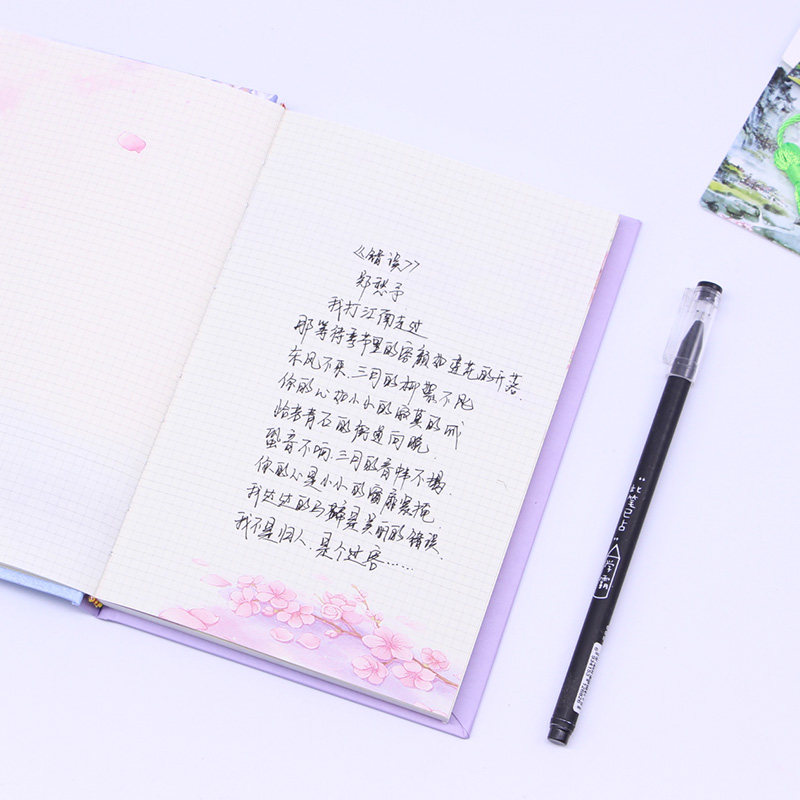 《错误》
郑愁予
我打江南走过
那等待季节里的容颜如莲花的开落.
东风不来,三月的柳絮不飞
你的心如小小的寂寞的城
恰若青石的街道向晚.
跫音不响,三月的春帷不揭.
你的心是小小的窗扉紧掩.
我达达的马蹄是美丽的错误.
我不是归人,是个过客……
"此笔已占"
学霸